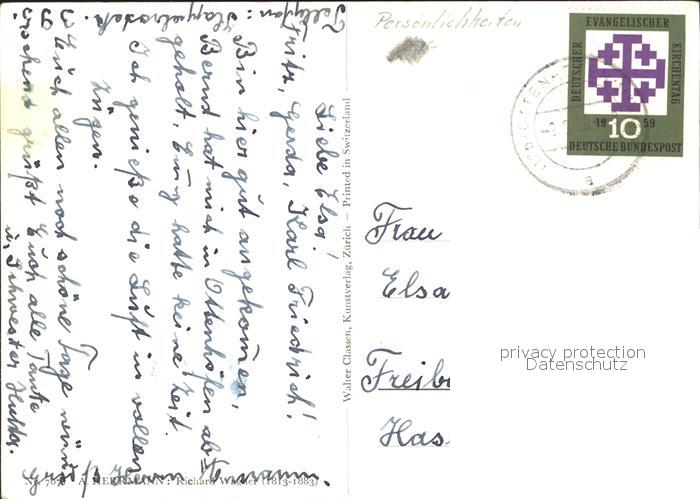 Liebe Elsa!
Fritz, Gerda, Karl Friedrich!
Bin hier gut angekommen,
Bernd hat mich in Ottenhöfen ab=
geholt, hatte keine Zeit.
Ich genieße die Luft in vollen
Zügen.
Euch allen noch schöne Tage
grüßt Euch alle Tante
u. Schwester Hulda.
Telephon: Kappelrodeck
Walter Classen, Kunstverlag, Zürich — Printed in Switzerland
A. HERRMANN: Richard Wagner (1813-1883)
Persönlichkeiten
DEUTSCHER
EVANGELISCHER
KIRCHENTAG
1959
10
DEUTSCHE BUNDESPOST
Frau
Elsa
Freib
Has
privacy protection
Datenschutz